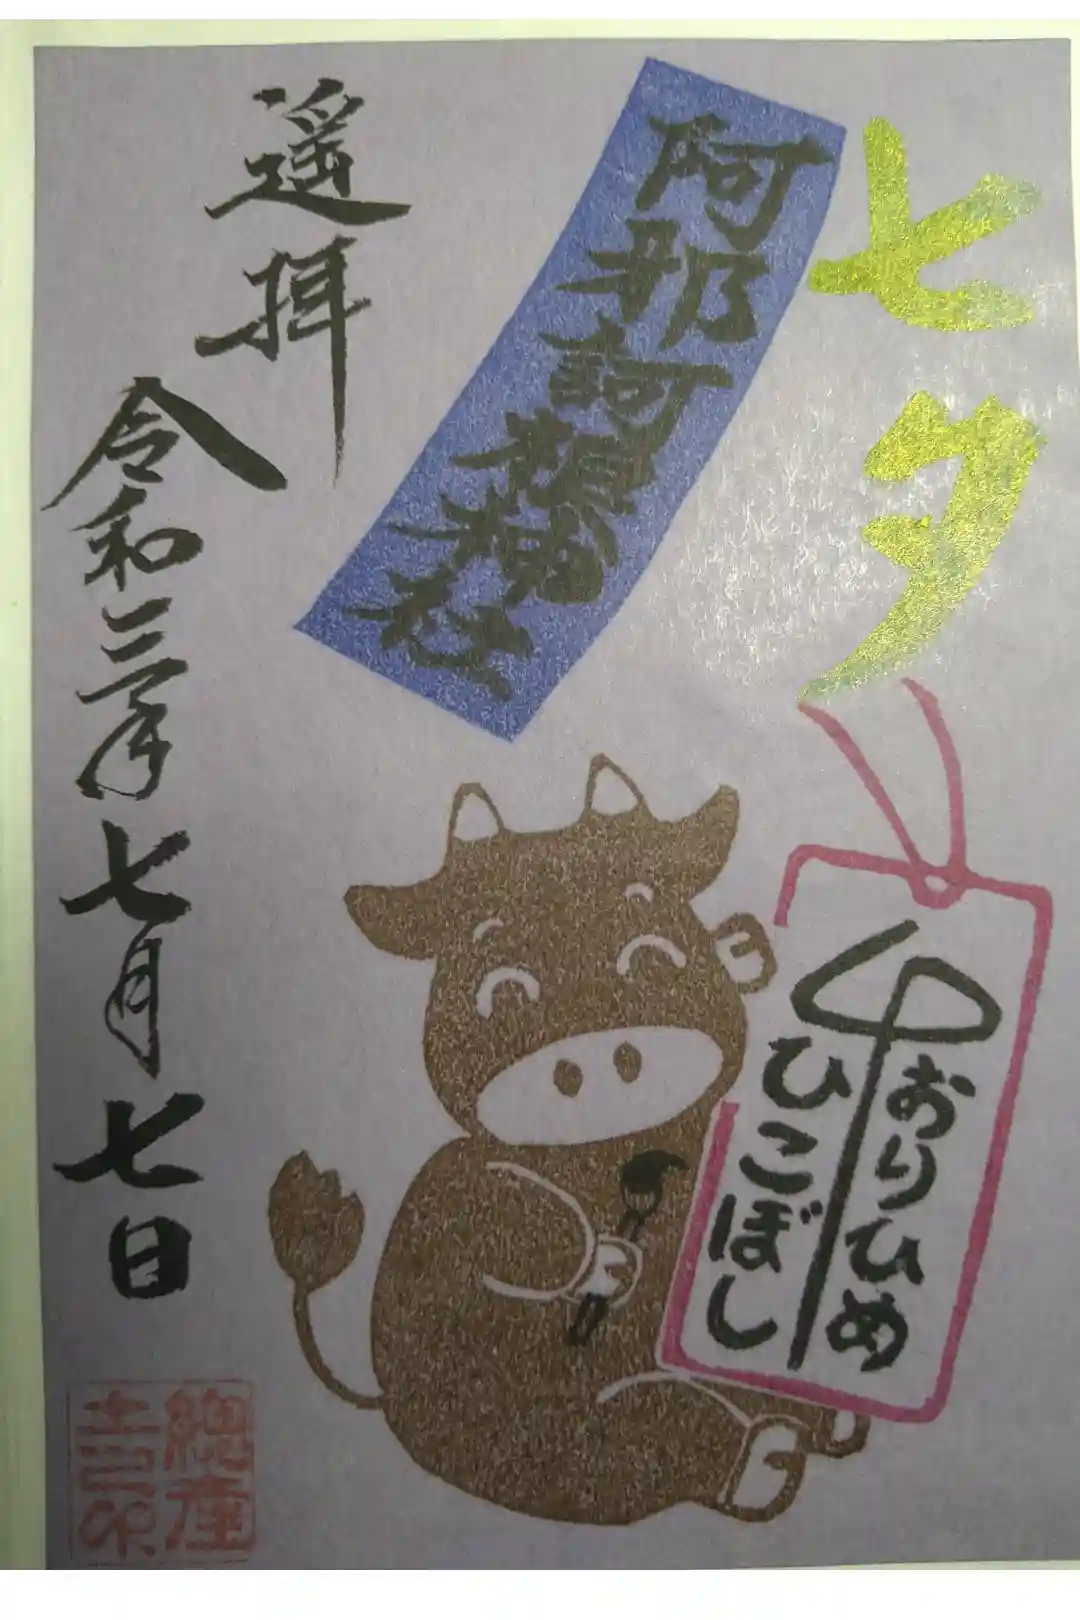 七夕
阿那訶根神社
おりひめ
ひこぼし
遥拝
令和三年七月七日
総産
土印